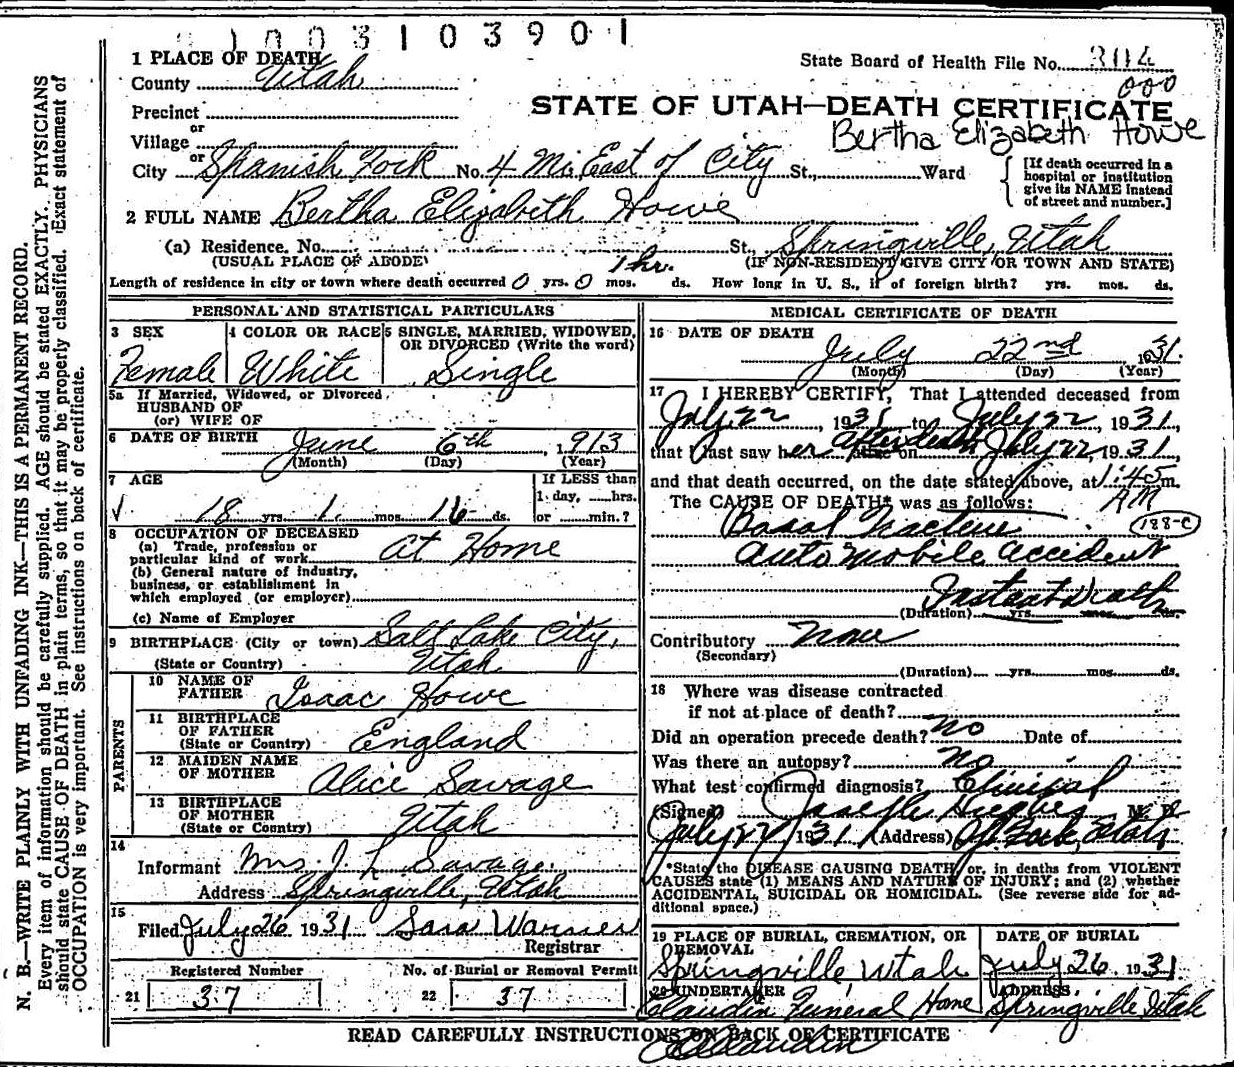 1003103901
1 PLACE OF DEATH
County Utah
State Board of Health File No. 3114
000
Precinct
STATE OF UTAH—DEATH CERTIFICATE
Bertha Elizabeth Howe
or
Village
or
City Spanish Fork No. 4 Mi. East of City St., Ward
[If death occurred in a
hospital or institution
give its NAME instead
of street and number.]
2 FULL NAME Bertha Elizabeth Howe
(a) Residence. No. St., Springville, Utah
(USUAL PLACE OF ABODE) (IF NON-RESIDENT GIVE CITY OR TOWN AND STATE)
1 hr.
Length of residence in city or town where death occurred 0 yrs. 0 mos. ds. How long in U. S., if of foreign birth? yrs. mos. ds.
PERSONAL AND STATISTICAL PARTICULARS
3 SEX
Female
4 COLOR OR RACE
White
5 SINGLE, MARRIED, WIDOWED,
OR DIVORCED (Write the word)
Single
5a If Married, Widowed, or Divorced
HUSBAND OF
(or) WIFE OF
6 DATE OF BIRTH June 6th, 1913
(Month) (Day) (Year)
7 AGE
18 yrs. 1 mos. 16 ds.
If LESS than
1 day, hrs.
or min.?
8 OCCUPATION OF DECEASED
(a) Trade, profession or
particular kind of work At Home
(b) General nature of industry,
business, or establishment in
which employed (or employer)
(c) Name of Employer
9 BIRTHPLACE (City or town) Salt Lake City,
(State or Country) Utah
PARENTS
10 NAME OF
FATHER Isaac Howe
11 BIRTHPLACE
OF FATHER
(State or Country) England
12 MAIDEN NAME
OF MOTHER Alice Savage
13 BIRTHPLACE
OF MOTHER
(State or Country) Utah
14
Informant Mrs. J. L. Savage.
Address Springville, Utah
15
Filed July 26 1931 Sara Warner
Registrar
Registered Number
21 37
No. of Burial or Removal Permit
22 37
MEDICAL CERTIFICATE OF DEATH
16 DATE OF DEATH
July 22nd 1931.
(Month) (Day) (Year)
17 I HEREBY CERTIFY, That I attended deceased from
July 22, 1931, to July 22, 1931,
that I last saw her alive on after death July 22, 1931,
and that death occurred, on the date stated above, at 1:45 m.
AM
The CAUSE OF DEATH* was as follows:
Basal Fracture
188-C
Automobile Accident
Instant Death
(Duration) yrs. mos. ds.
Contributory None
(Secondary)
(Duration) yrs. mos. ds.
18 Where was disease contracted
if not at place of death?
Did an operation precede death? No Date of
Was there an autopsy? No
What test confirmed diagnosis? Clinical
(Signed) Joseph Hughes M. D.
July 22, 1931 (Address) Sp. Fork, Utah
*State the DISEASE CAUSING DEATH, or, in deaths from VIOLENT
CAUSES state (1) MEANS AND NATURE OF INJURY; and (2) whether
ACCIDENTAL, SUICIDAL OR HOMICIDAL. (See reverse side for ad-
ditional space.)
19 PLACE OF BURIAL, CREMATION, OR
REMOVAL
Springville, Utah
DATE OF BURIAL
July 26, 1931
20 UNDERTAKER
Claudin Funeral Home
ADDRESS
Springville Utah
READ CAREFULLY INSTRUCTIONS ON BACK OF CERTIFICATE
N. B.—WRITE PLAINLY WITH UNFADING INK—THIS IS A PERMANENT RECORD.
Every item of information should be carefully supplied. AGE should be stated EXACTLY. PHYSICIANS
should state CAUSE OF DEATH in plain terms, so that it may be properly classified. Exact statement of
OCCUPATION is very important. See instructions on back of certificate.